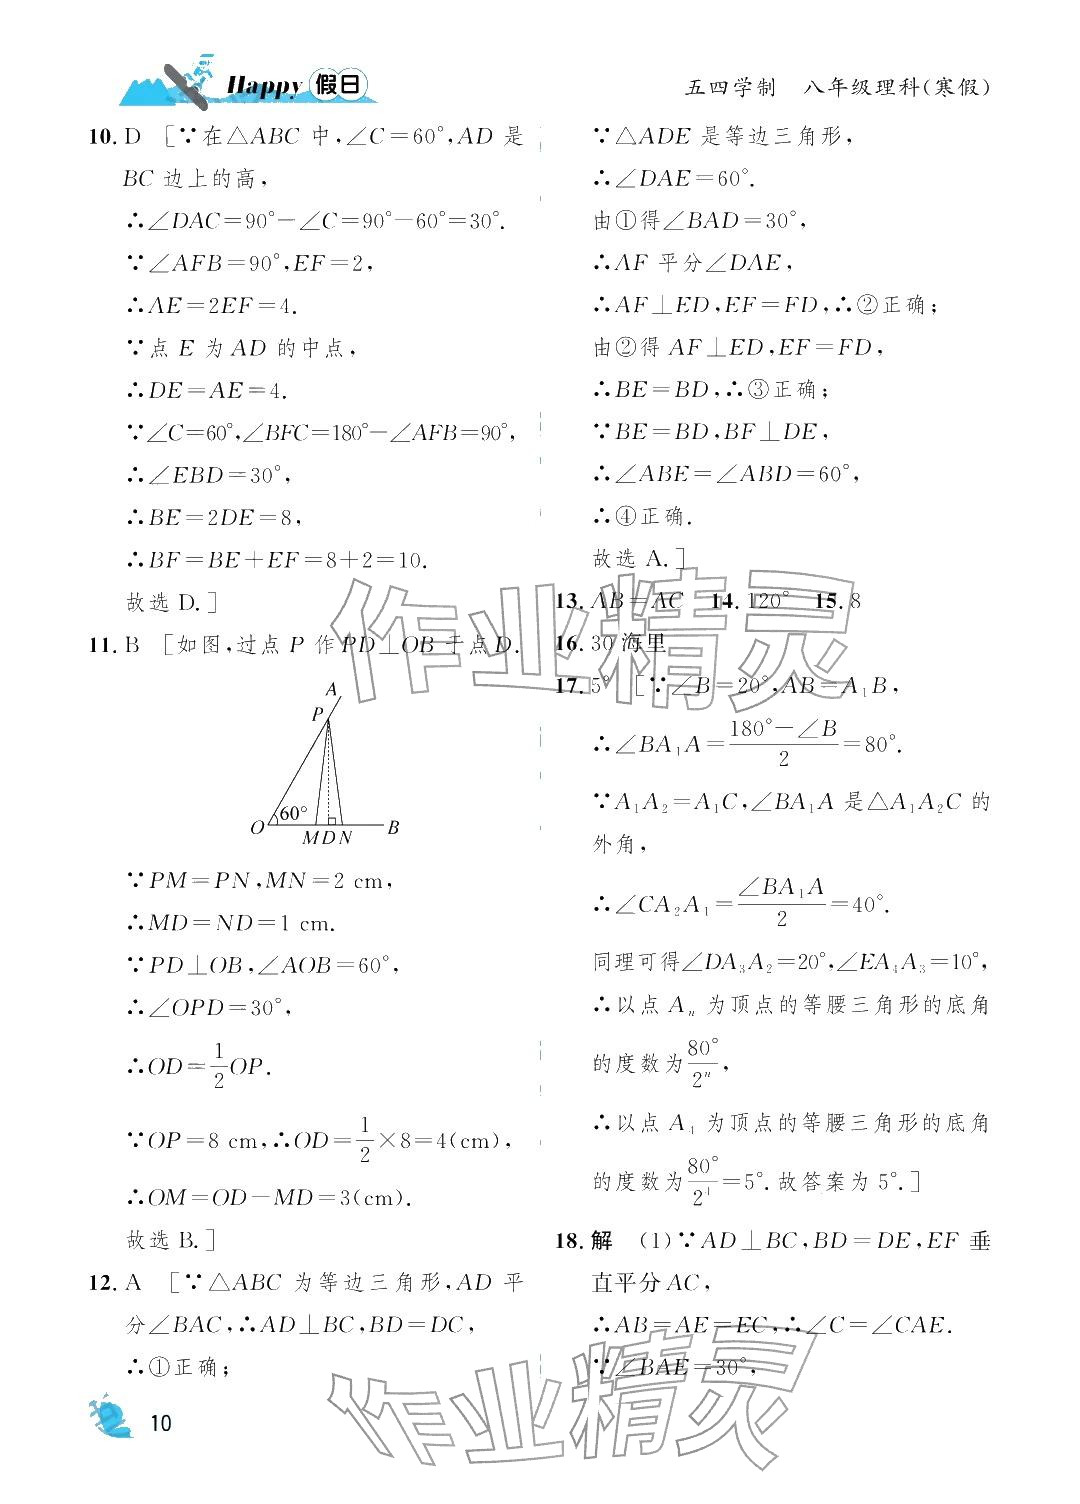 Happy假日
五四学制　八年级理科(寒假)
10. D　[∵在△ABC 中,∠C=60°,AD 是
BC 边上的高,
∴∠DAC=90°-∠C=90°-60°=30°.
∵∠AFB=90°,EF=2,
∴AE=2EF=4.
∵点 E 为 AD 的中点,
∴DE=AE=4.
∵∠C=60°,∠BFC=180°-∠AFB=90°,
∴∠EBD=30°,
∴BE=2DE=8,
∴BF=BE+EF=8+2=10.
故选 D.]
11. B　[如图,过点 P 作 PD⊥OB 于点 D.
A
P
60°
O
M D N
B
∵PM=PN,MN=2 cm,
∴MD=ND=1 cm.
∵PD⊥OB,∠AOB=60°,
∴∠OPD=30°,
∴OD=1/2 OP.
∵OP=8 cm,∴OD=1/2×8=4(cm),
∴OM=OD-MD=3(cm).
故选 B.]
12. A　[∵△ABC 为等边三角形,AD 平
分∠BAC,∴AD⊥BC,BD=DC,
∴①正确;
∵△ADE 是等边三角形,
∴∠DAE=60°.
由①得∠BAD=30°,
∴AF 平分∠DAE,
∴AF⊥ED,EF=FD,∴②正确;
由②得 AF⊥ED,EF=FD,
∴BE=BD,∴③正确;
∵BE=BD,BF⊥DE,
∴∠ABE=∠ABD=60°,
∴④正确.
故选 A.]
13. AB=AC　14. 120°　15. 8
16. 30 海里
17. 5°　[∵∠B=20°,AB=A₁B,
∴∠BA₁A=(180°-∠B)/2=80°.
∵A₁A₂=A₁C,∠BA₁A 是△A₁A₂C 的
外角,
∴∠CA₂A₁=∠BA₁A/2=40°.
同理可得∠DA₃A₂=20°,∠EA₄A₃=10°,
∴以点 Aₙ 为顶点的等腰三角形的底角
的度数为80°/2ⁿ,
∴以点 A₄ 为顶点的等腰三角形的底角
的度数为80°/2⁴=5°.故答案为 5°.]
18. 解　(1)∵AD⊥BC,BD=DE,EF 垂
直平分 AC,
∴AB=AE=EC,∴∠C=∠CAE.
∵∠BAE=30°,
10
作业精灵
作业精灵